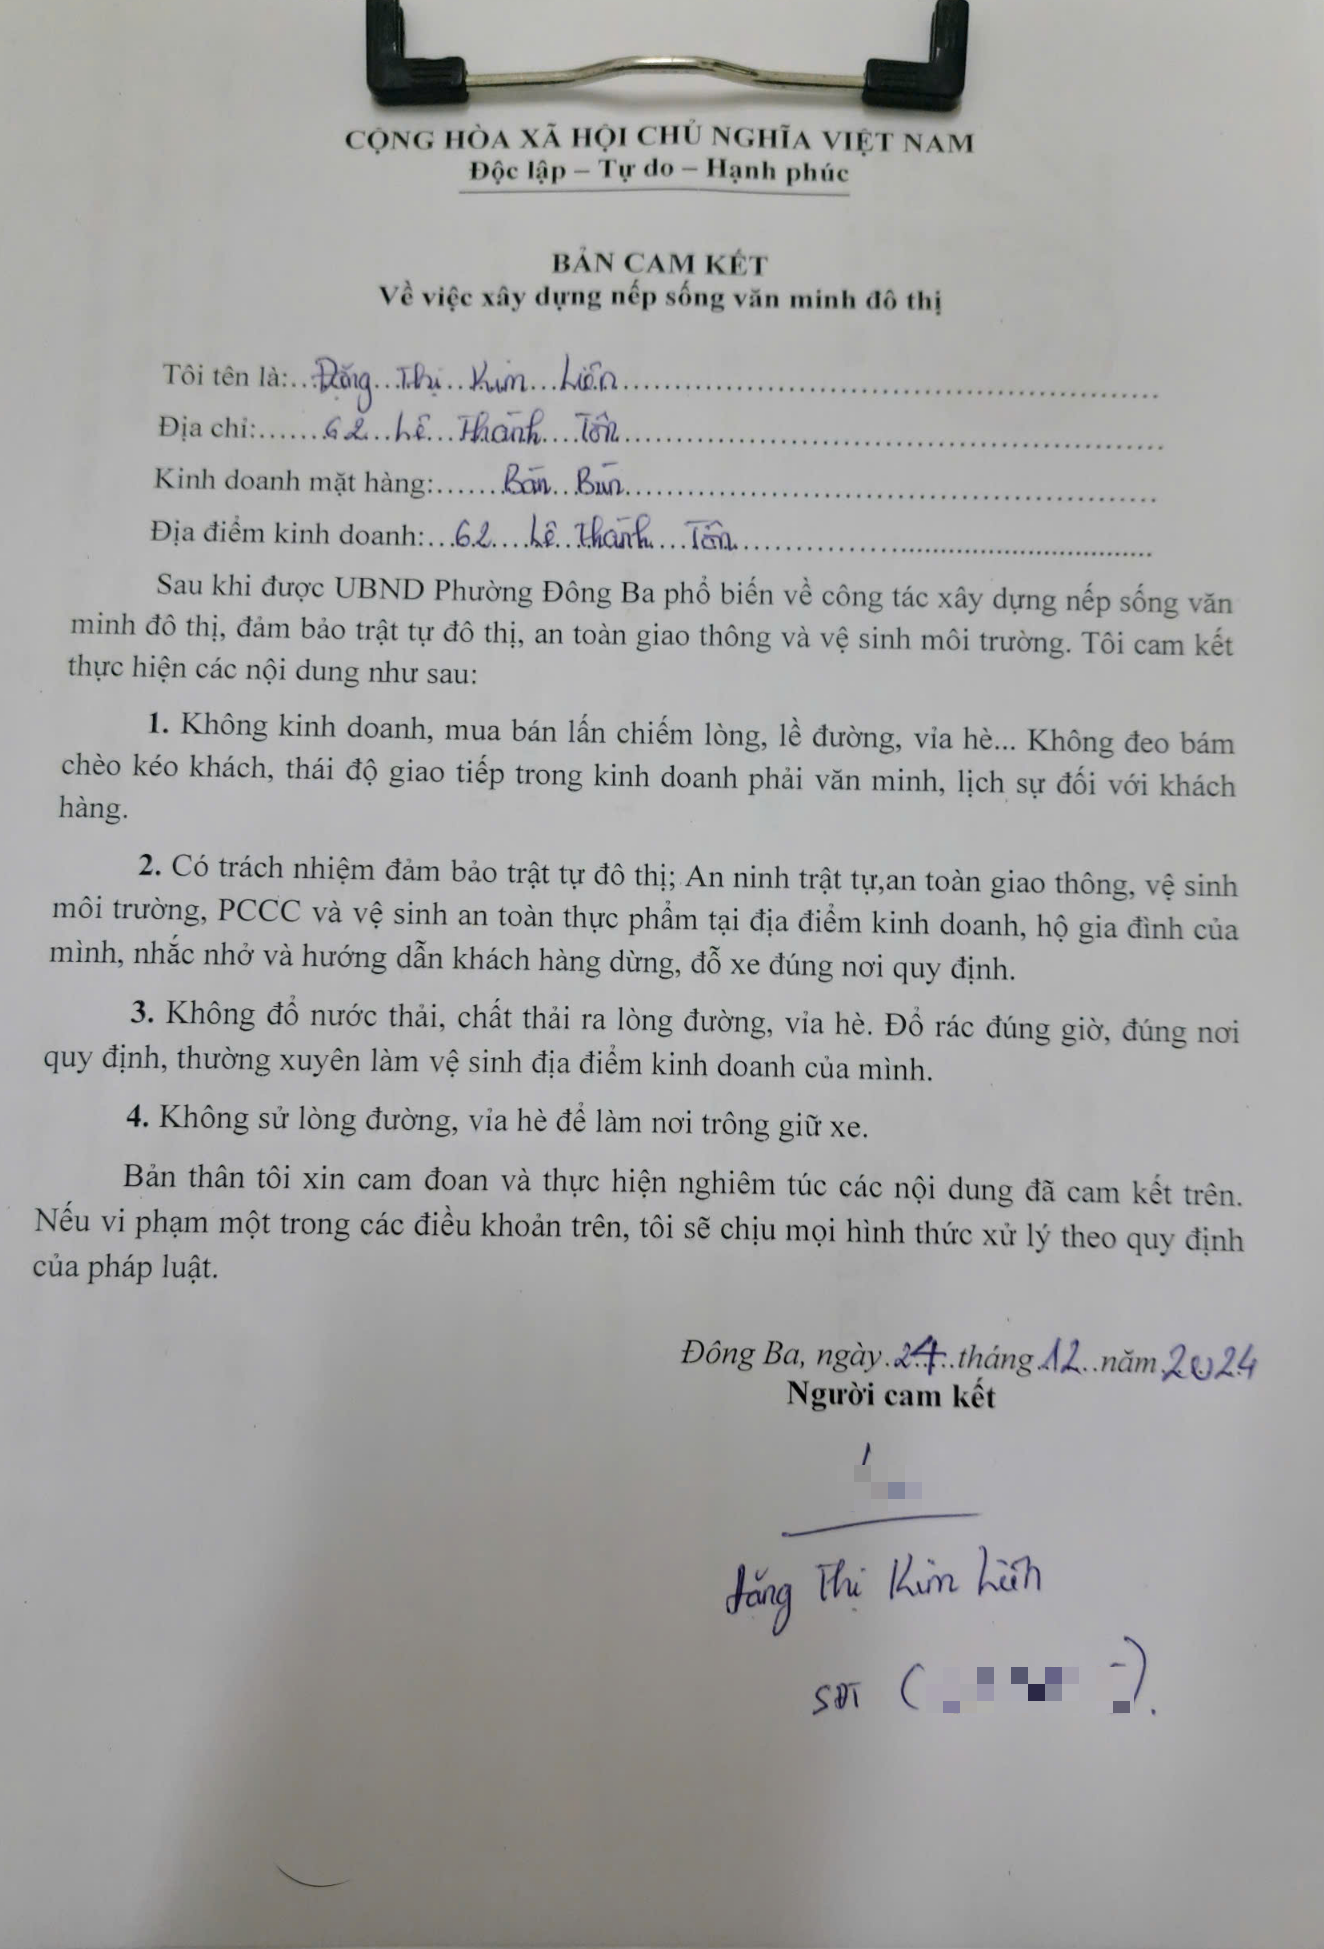 CỘNG HÒA XÃ HỘI CHỦ NGHĨA VIỆT NAM
Độc lập – Tự do – Hạnh phúc
BẢN CAM KẾT
Về việc xây dựng nếp sống văn minh đô thị
Tôi tên là: Đặng Thị Kim Liên
Địa chỉ: 62 Lê Thánh Tôn
Kinh doanh mặt hàng: Bán Bún
Địa điểm kinh doanh: 62 Lê Thánh Tôn
Sau khi được UBND Phường Đông Ba phổ biến về công tác xây dựng nếp sống văn
minh đô thị, đảm bảo trật tự đô thị, an toàn giao thông và vệ sinh môi trường. Tôi cam kết
thực hiện các nội dung như sau:
1. Không kinh doanh, mua bán lấn chiếm lòng, lề đường, vỉa hè... Không đeo bám
chèo kéo khách, thái độ giao tiếp trong kinh doanh phải văn minh, lịch sự đối với khách
hàng.
2. Có trách nhiệm đảm bảo trật tự đô thị; An ninh trật tự,an toàn giao thông, vệ sinh
môi trường, PCCC và vệ sinh an toàn thực phẩm tại địa điểm kinh doanh, hộ gia đình của
mình, nhắc nhở và hướng dẫn khách hàng dừng, đỗ xe đúng nơi quy định.
3. Không đổ nước thải, chất thải ra lòng đường, vỉa hè. Đổ rác đúng giờ, đúng nơi
quy định, thường xuyên làm vệ sinh địa điểm kinh doanh của mình.
4. Không sử lòng đường, vỉa hè để làm nơi trông giữ xe.
Bản thân tôi xin cam đoan và thực hiện nghiêm túc các nội dung đã cam kết trên.
Nếu vi phạm một trong các điều khoản trên, tôi sẽ chịu mọi hình thức xử lý theo quy định
của pháp luật.
Đông Ba, ngày 24 tháng 12 năm 2024
Người cam kết
Đặng Thị Kim Liên
SĐT